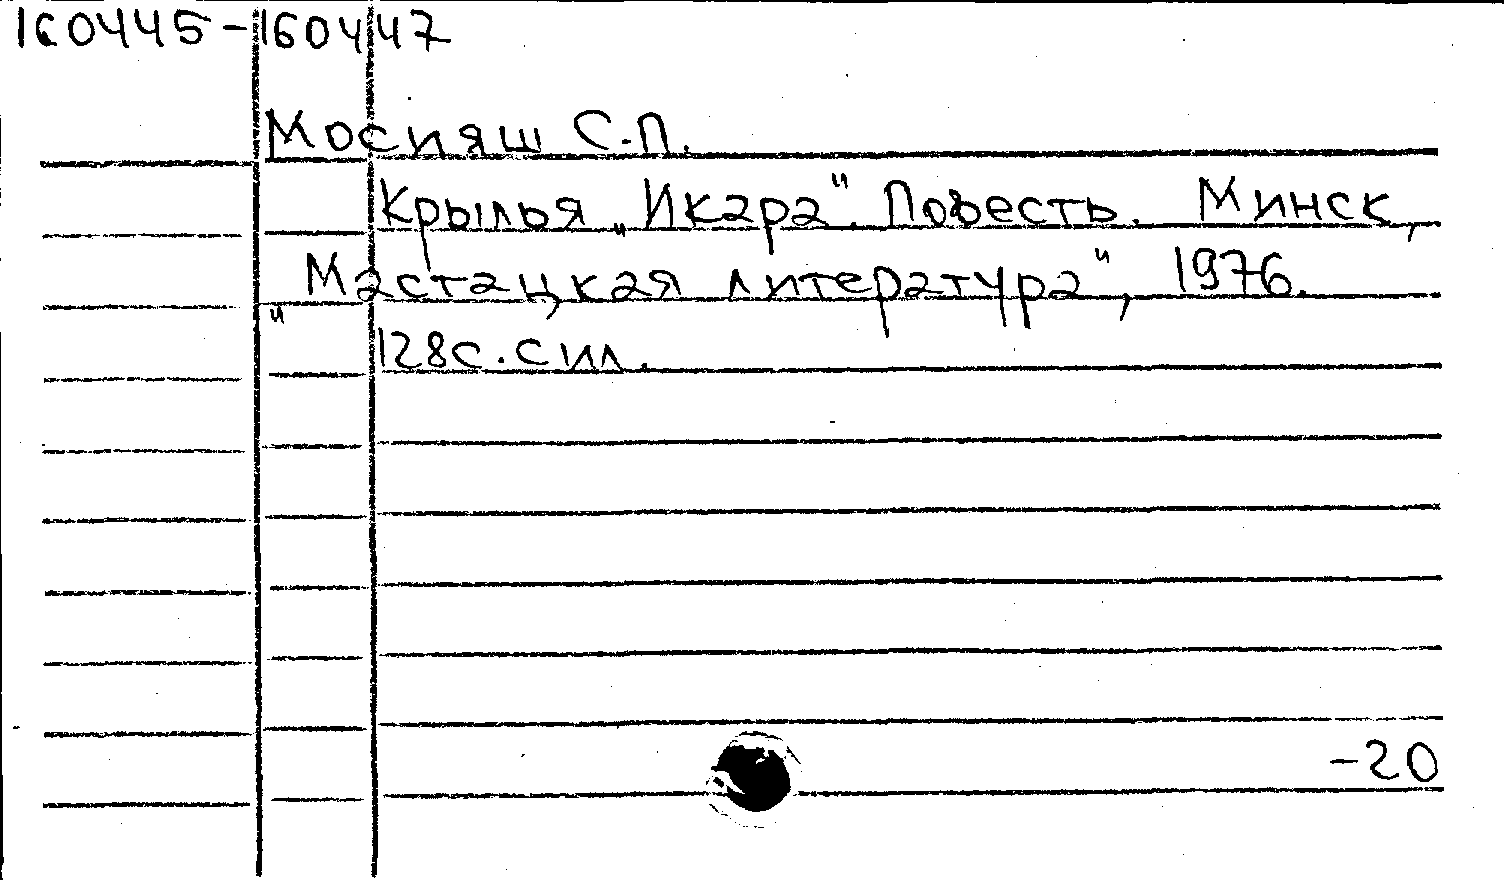 160445-160447
Мосияш С.П.
Крылья „Икара“. Повесть. Минск,
„Мастацкая литература“, 1976.
128с. с ил.
-20